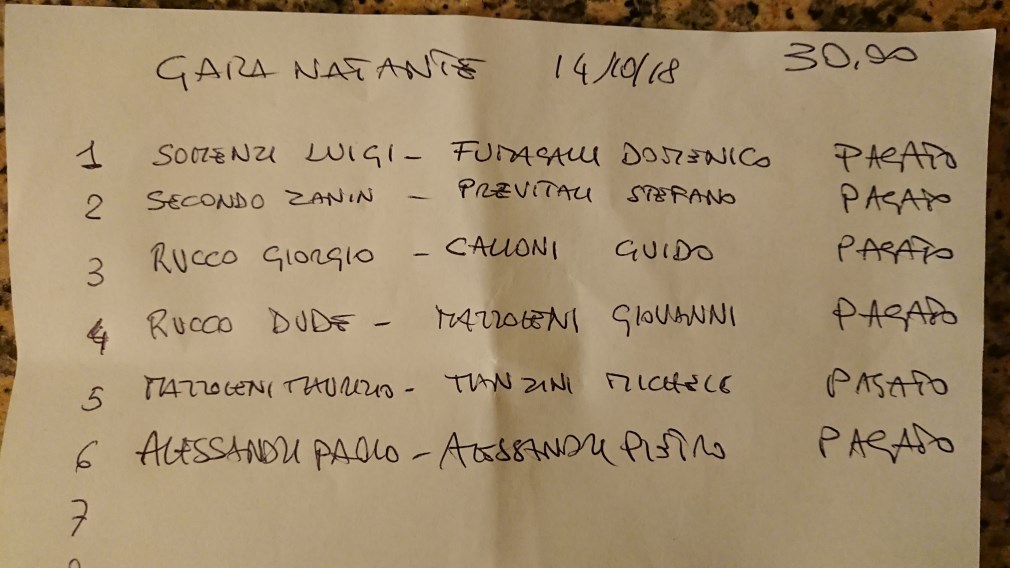 GARA NATANTE 14/10/18 30,00
1 SOMENZI LUIGI - FUMAGALLI DOMENICO PAGATO
2 SECONDO ZANIN - PREVITALI STEFANO PAGATO
3 RUCCO GIORGIO - CALLONI GUIDO PAGATO
4 RUCCO DUDE - MAZZOLENI GIOVANNI PAGATO
5 MAZZOLENI MAURIZIO - MANZINI MICHELE PAGATO
6 ALESSANDRI PAOLO - ALESSANDRI PIETRO PAGATO
7